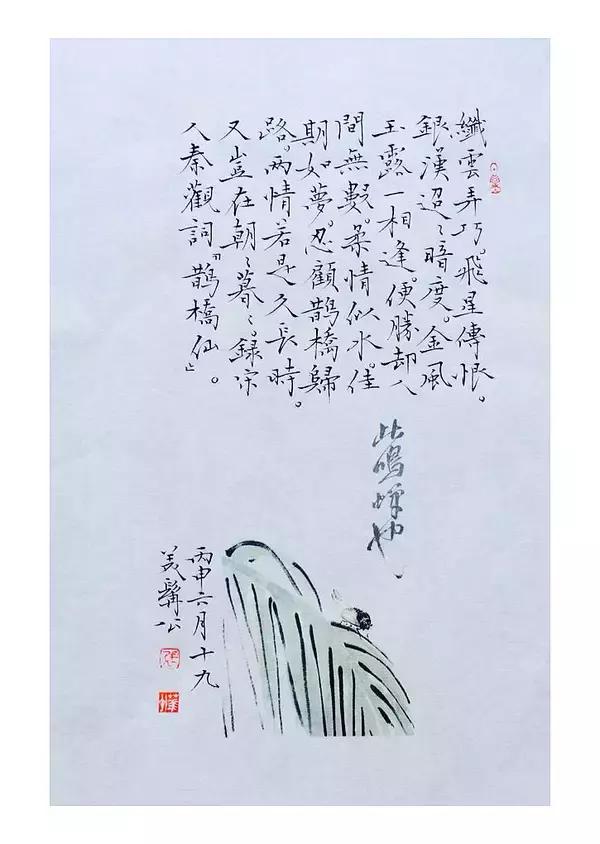 纖雲弄巧。飛星傳恨。
銀漢迢〻暗度。金風
玉露一相逢。便勝却人
間無數。柔情似水。佳
期如夢。忍顧鵲橋歸
路。兩情若是久長時。
又豈在朝〻暮〻。錄宋
人秦觀詞『鵲橋仙』。
此鳴蟬也
丙申六月十九
美髯公